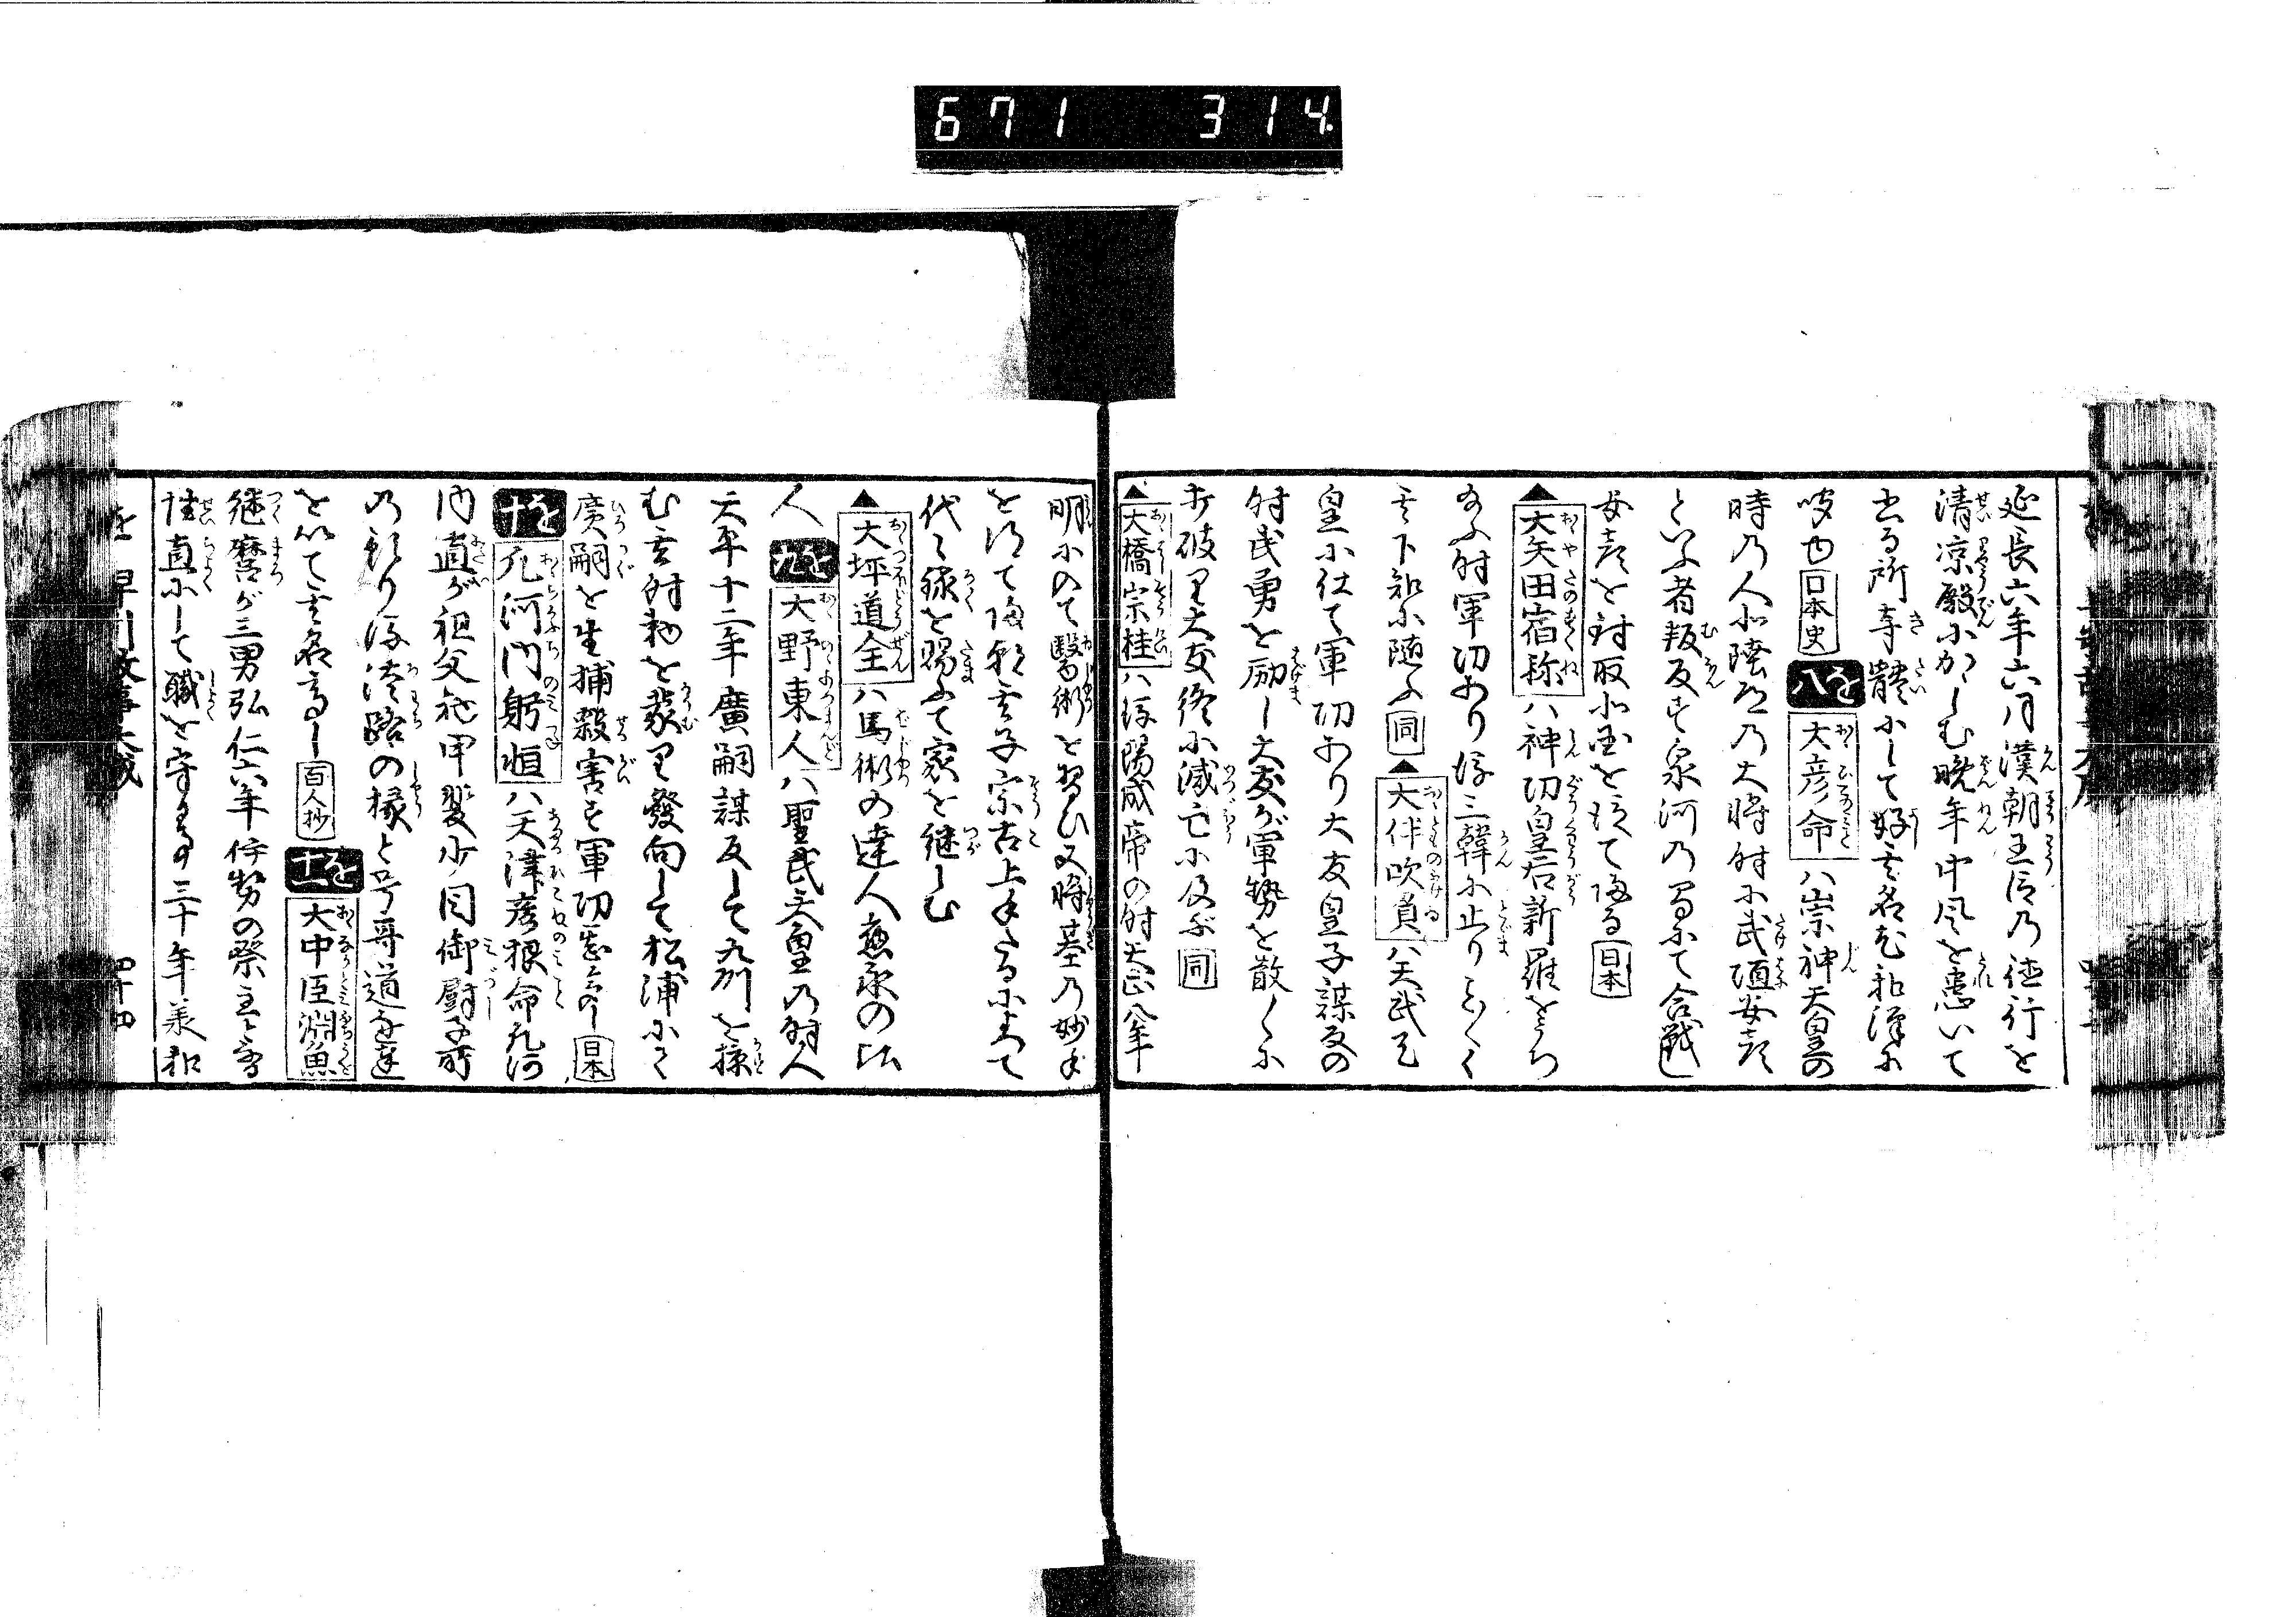 671 314
延長六年六月漢朝王臣乃徳行を
清凉殿にかゝしむ晩年中風を患いて
書る所奇體にして好其名尤和漢に
日本史 を八 大彦命ハ崇神天皇の
時の人北陸道乃大将時に武埴安彦
といふ者叛反す泉河の
安彦を討取北国を 帰る 日本
▲大矢田宿祢ハ神功皇后新羅をうち
給ふ時軍功あり後三韓に止り
其下知に随ふ 同 ▲大伴吹負ハ天武天
皇に仕て軍功あり大友皇子謀反の
時武勇を励し大友が軍勢を散〻に
打破り大友終に滅亡に及ぶ 同
▲大橋宗桂ハ後陽成帝の時天正八年
明にのて醫術を習ひ又将基乃妙手
を得て帰朝其子宗古上手たるによて
代〻禄を賜ふて家を継しむ
▲大坪道全ハ馬術の達人應永の比
人 を九 大野東人ハ聖武天皇乃時人
天平十二年廣嗣謀反して九州を掠
む其時勅を蒙り發向して松浦にて
廣嗣を生捕殺害す軍功 日本
を十 凡河内躬恒ハ天津彦根命凡河
内直が祖父也甲斐少目御厨子所
の預り後淡路の掾と号哥道に達
を以て其名高し 百人抄 を十一 大中臣淵魚
継麿が三男弘仁六年伊勢の祭主と
性直にして職を守る事三十年美和
を 早引故事大成 四十四